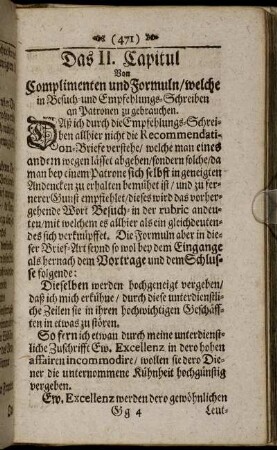 (471)
Das II. Capitul
Von
Complimenten und Formuln/welche
in Besuch-und Empfehlungs-Schreiben
an Patronen zu gebrauchen.
DAß ich durch die Empfehlungs-Schrei-
ben allhier nicht die Recommendati-
on-Briefe verstehe/ welche man eines
andern wegen lässet abgehen/sondern solche/da
man bey einem Patrone sich selbst in geneigten
Andencken zu erhalten bemühet ist/ und zu fer-
nerer Gunst empfiehlet/dieses wird das vorher-
gehende Wort Besuch- in der rubric andeu-
ten/mit welchem es allhier als ein gleichdeuten-
des sich verknüpffet. Die Formuln aber in die-
ser Brief-Art seynd so wol bey dem Eingange
als hernach dem Vortrage und dem Schlus-
se folgende:
Dieselben werden hochgeneigt vergeben/
daß ich mich erkühne/ durch diese unterdienstli-
che Zeilen sie in ihren hochwichtigen Geschäff-
ten in etwas zu stören.
So fern ich etwan durch meine unterdienst-
liche Zuschrifft Ew. Excellenz in dero hohen
affairen incommodire/ wollen sie dero Die-
ner die unternommene Kühnheit hochgünstig
vergeben.
Ew. Excellenz werden dero gewöhnlichen
Gg 4 Leut-